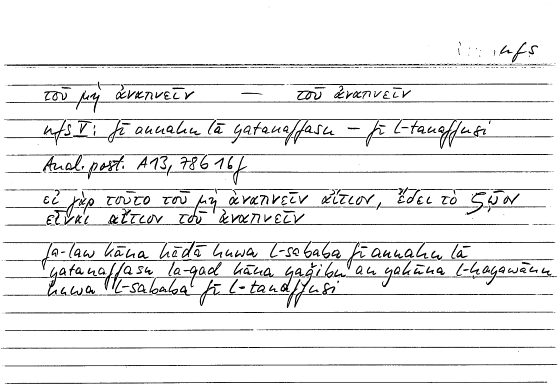 nfs
τοῦ μὴ ἀναπνεῖν — τοῦ ἀναπνεῖν
nfs V: fī annahu lā yatanaffasu – fī l-tanaffusi
Anal. post. A13, 78b16f
εἰ γὰρ τοῦτο τοῦ μὴ ἀναπνεῖν αἴτιον, ἔδει τὸ ζῷον
εἶναι αἴτιον τοῦ ἀναπνεῖν
fa-law kāna hādā huwa l-sababa fī annahu lā
yatanaffasu la-qad kāna yaǧibu an yakūna l-ḥayawānu
huwa l-sababa fī l-tanaffusi